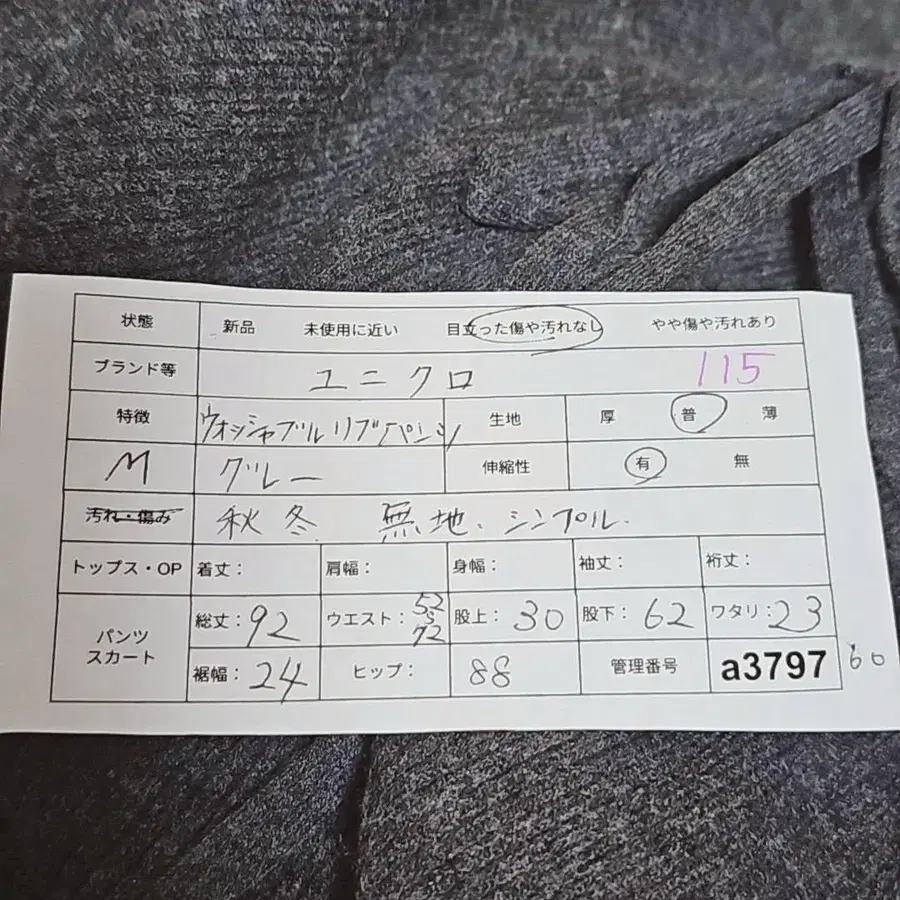 状態 新品 未使用に近い 目立った傷や汚れなし やや傷や汚れあり
ブランド等 ユニクロ 115
特徴 ウォッシャブルリブパンツ 生地 厚 普 薄
M グレー 伸縮性 有 無
汚れ・傷み 秋冬 無地、シンプル.
トップス・OP 着丈: 肩幅: 身幅: 袖丈: 裄丈:
パンツ
スカート
総丈:92 ウエスト:52 72 股上:30 股下:62 ワタリ:23
裾幅:24 ヒップ: 88 管理番号 a3797 60